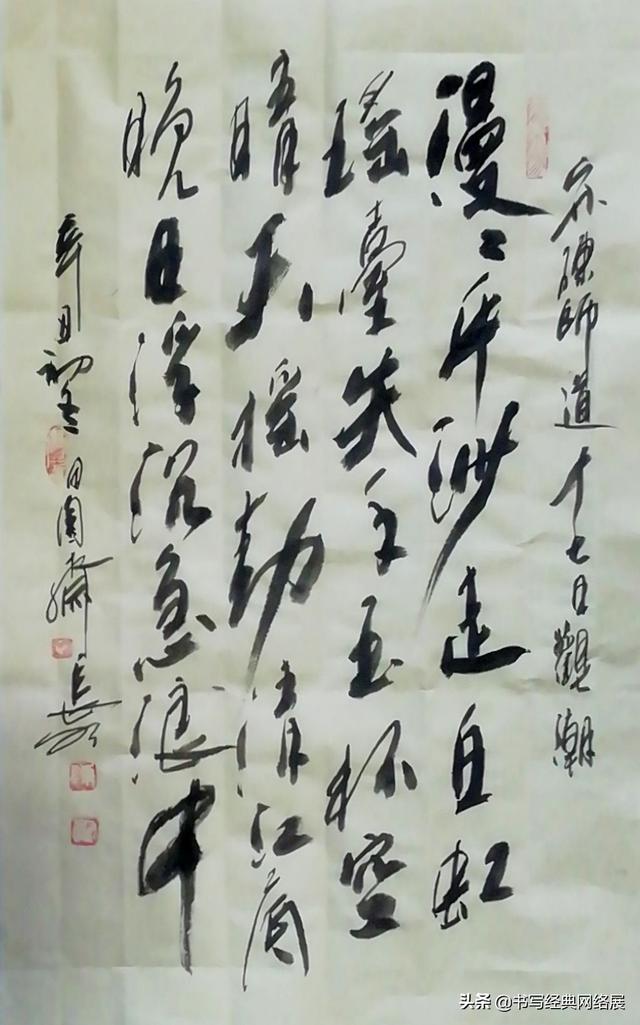 宋陳師道十七日觀潮
漫〻平沙走白虹
瑤臺失手玉杯空
晴天搖動清江底
晚日浮沉急浪中
辛丑初 田園齋
头条 @书写经典网络展